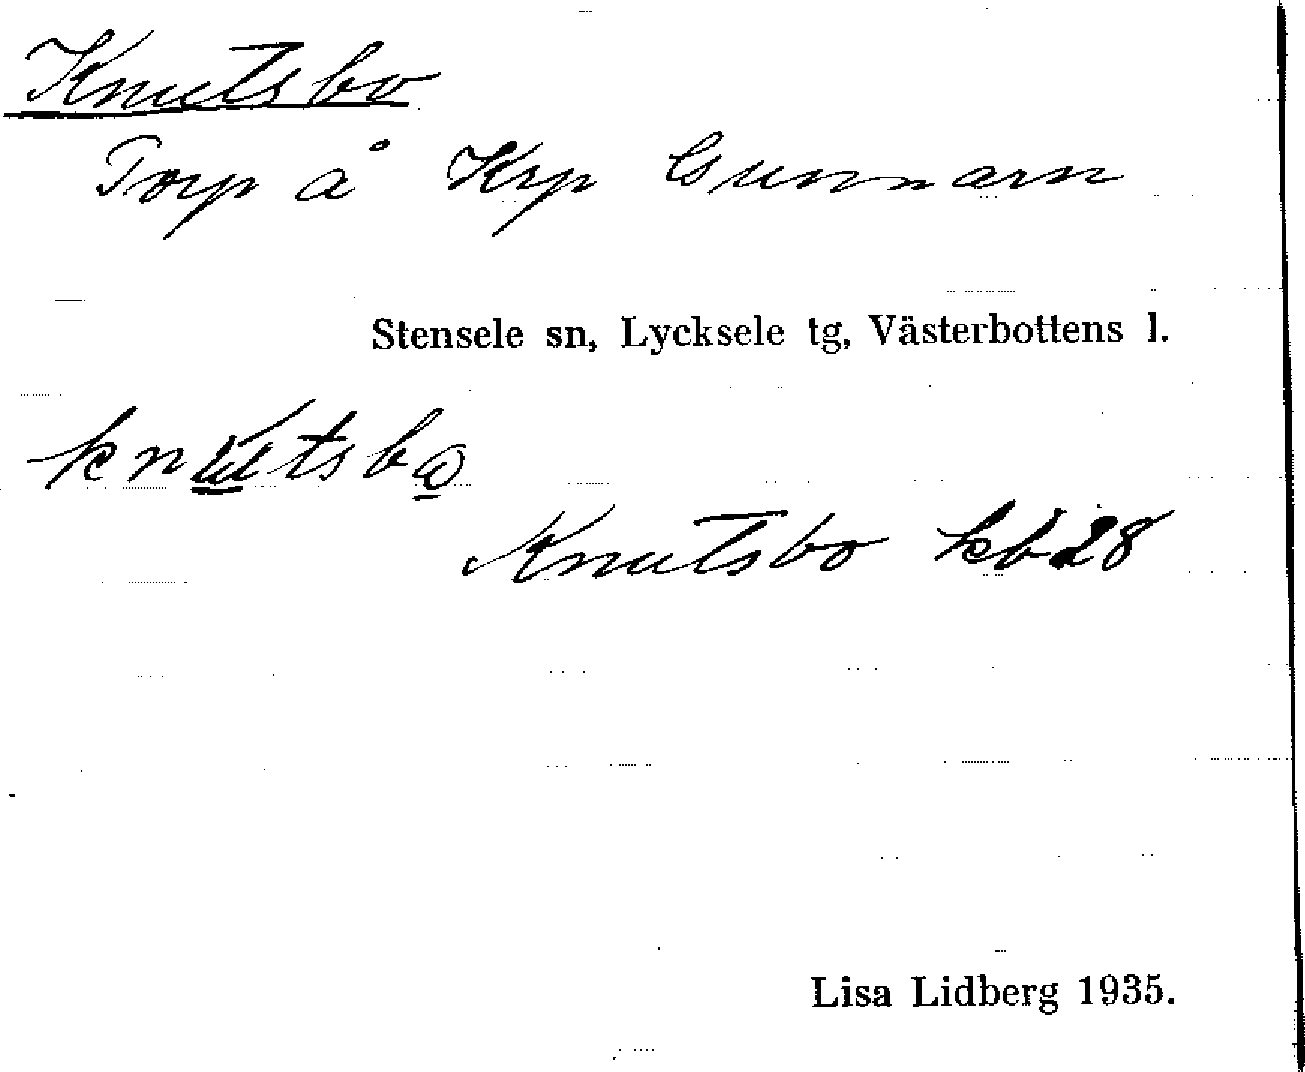 Knutsbo
Torp å Krp Gunnarn
Stensele sn, Lycksele tg, Västerbottens l.
knutsbo
Knutsbo kb 28
Lisa Lidberg 1935.